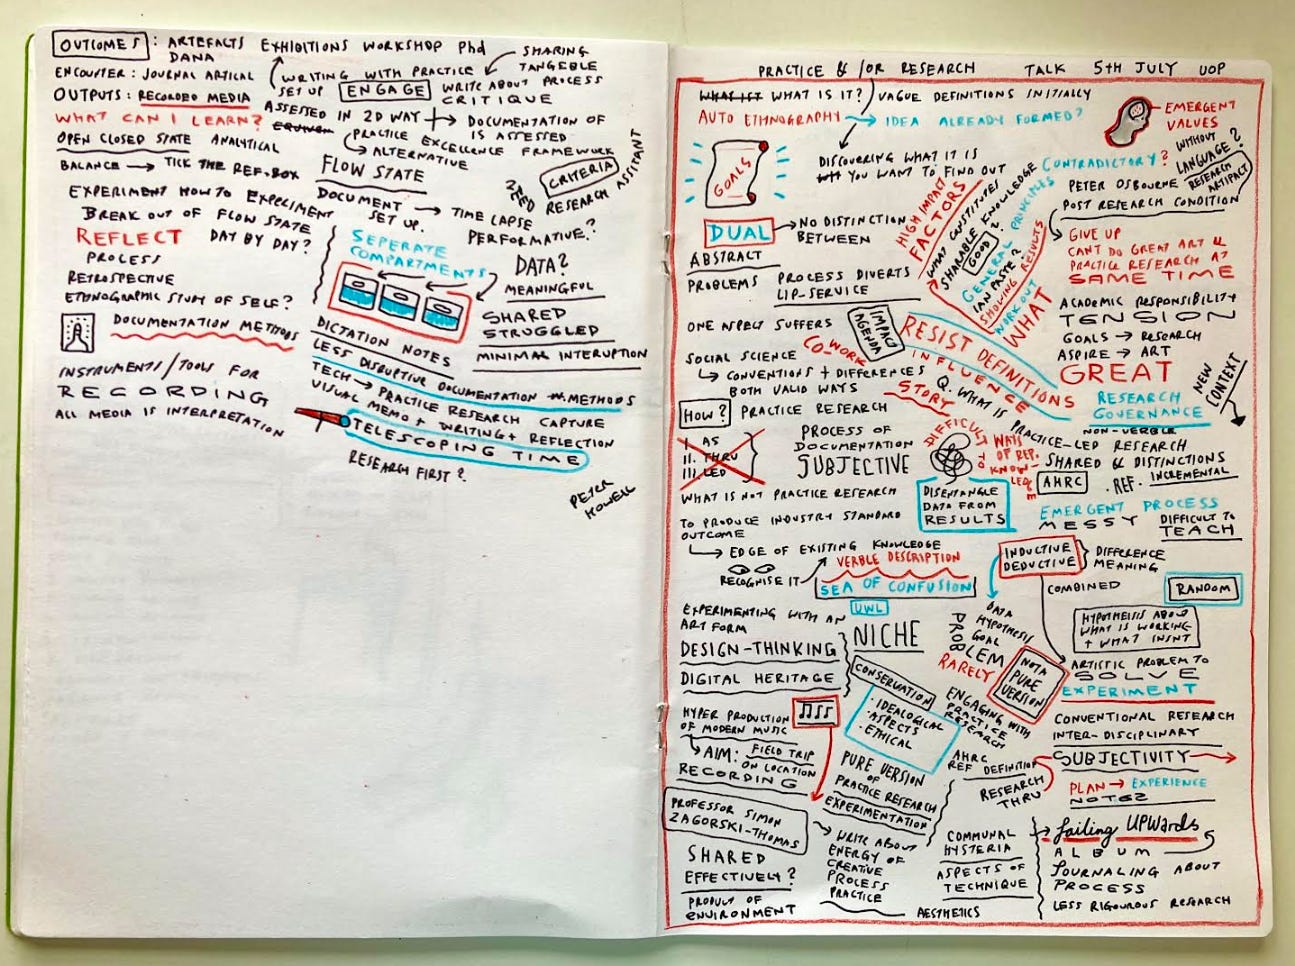 OUTCOMES : ARTEFACTS EXHIBITIONS WORKSHOP Phd
DANA
SHARING
TANGEBLE
ENCOUTER : JOURNAL ARTICAL
WRITING WITH PRACTICE
SET UP ENGAGE WRITE ABOUT PROCESS
CRITIQUE
OUTPUTS : RECORDED MEDIA
WHAT CAN I LEARN?
ASSESSED IN 2D WAY → DOCUMENTATION OF
IS ASSESSED
OPEN CLOSED STATE ANALYTICAL
PRACTICE EXCELLENCE FRAMEWORK
ALTERNATIVE
BALANCE → TICK THE REF.BOX
FLOW STATE
2ND CRITERIA
RESEARCH ASSISTANT
EXPERIMENT HOW TO EXPECIMENT
BREAK OUT OF FLOW STATE
DOCUMENT → TIME LAPSE
SET UP. PERFORMATIVE.?
REFLECT DAY BY DAY?
PROCESS
RETROSPECTIVE
ETHNOGRAPHIC STUDY OF SELF?
SEPERATE
COMPARTMENTS
DATA?
MEANINGFUL
SHARED
STRUGGLED
MINIMAL INTERUPTION
DOCUMENTATION METHODS
DICTATION NOTES
LESS DISRUPTIVE DOCUMENTATION METHODS
TECH → PRACTICE RESEARCH CAPTURE
VISUAL MEMO + WRITING + REFLECTION
INSTRUMENTS/TOOLS FOR
RECORDING
ALL MEDIA IS INTERPRETATION
TELESCOPING TIME
RESEARCH FIRST?
PETER
HOWELL
PRACTICE & /OR RESEARCH TALK 5TH JULY UOP
WHAT IS IT? VAGUE DEFINITIONS INITIALLY
AUTO ETHNOGRAPHY → IDEA ALREADY FORMED?
EMERGENT
VALUES
GOALS
DISCOVERING WHAT IT IS
YOU WANT TO FIND OUT
CONTRADICTORY?
WITHOUT
LANGUAGE?
RESEARCH
ARTIFACT
PETER OSBOURNE
POST RESEARCH CONDITION
HIGH IMPACT
FACTORS
WHAT CONSTITUTES
SHARABLE KNOWLEDGE
GOOD?
GENERAL PRINCIPLES
IAN PASTE?
SHOWING RESULTS
WORK OUT
WHAT
DUAL → NO DISTINCTION
BETWEEN
GIVE UP
CANT DO GREAT ART &
PRACTICE RESEARCH AT
SAME TIME
ABSTRACT
PROBLEMS
PROCESS DIVERTS
LIP-SERVICE
ACADEMIC RESPONSIBILITY
TENSION
GOALS → RESEARCH
ASPIRE → ART
GREAT
ONE ASPECT SUFFERS
IMPACT
AGENDA
RESIST DEFINITIONS
INFLUENCE
SOCIAL SCIENCE
CO-WORK
CONVENTIONS + DIFFERENCES
BOTH VALID WAYS
STORY
Q. WHAT IS
PRACTICE-LED RESEARCH
RESEARCH
GOVERNANCE
NON-VERBLE
NEW
CONTEXT
HOW? PRACTICE RESEARCH
I. AS
II. THRU
III. LED
PROCESS OF
DOCUMENTATION
SUBJECTIVE
DIFFICULT TO
DISENTANGLE
DATA FROM
RESULTS
WAYS
OF REP.
KNOW-
LEDGE
SHARED & DISTINCTIONS
AHRC .REF. INCREMENTAL
WHAT IS NOT PRACTICE RESEARCH
TO PRODUCE INDUSTRY STANDARD
OUTCOME
EDGE OF EXISTING KNOWLEDGE
EMERGENT PROCESS
MESSY
DIFFICULT TO
TEACH
RECOGNISE IT
VERBLE DESCRIPTION
SEA OF CONFUSION
INDUCTIVE
DEDUCTIVE
DIFFERENCE
MEANING
COMBINED
RANDOM
UWL
EXPERIMENTING WITH AN
ART FORM
NICHE
DESIGN-THINKING
DIGITAL HERITAGE
DATA
HYPOTHESIS
GOAL
PROBLEM
RARELY
HYPOTHEISIS ABOUT
WHAT IS WORKING
+ WHAT INSNT
NOT A
PURE
VERSION
ARTISTIC PROBLEM TO
SOLVE
EXPERIMENT
CONSERVATION
. IDEALOGICAL
. ASPECTS
. ETHICAL
ENGAGING WITH
PRACTICE
RESEARCH
HYPER PRODUCTION
OF MODERN MUSIC
CONVENTIONAL RESEARCH
INTER-DISCIPLINARY
AIM: FIELD TRIP
ON LOCATION
RECORDING
PURE VERSION
OF
PRACTICE RESEARCH
EXPERIMENTATION
AHRC
REF DEFINITION
RESEARCH
THRU
SUBJECTIVITY
PLAN → EXPERIENCE
NOTES
PROFESSOR SIMON
ZAGORSKI-THOMAS
SHARED
EFFECTIVELY?
PRODUCT OF
ENVIRONMENT
WRITE ABOUT
ENERGY OF
CREATIVE
PROCESS
PRACTICE
COMMUNAL
HYSTERIA
ASPECTS OF
TECHNIQUE
AESTHETICS
failing UPWards
ALBUM
JOURNALING ABOUT
PROCESS
LESS RIGOUROUS RESEARCH